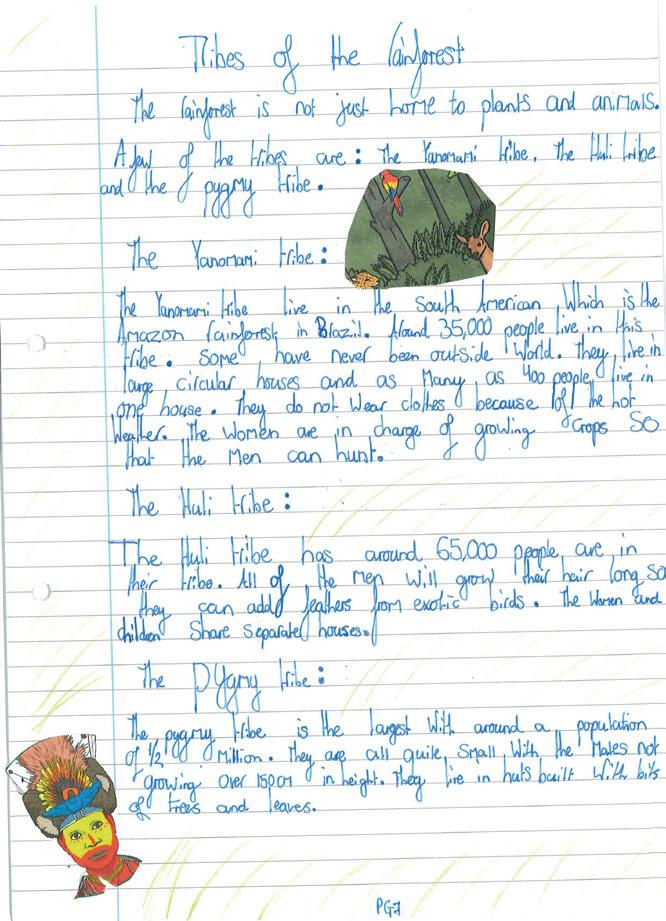 Tribes of the rainforest
The rainforest is not just home to plants and animals.
A few of the tribes are : The Yanomami tribe. The Huli tribe
and the pygmy tribe.
The Yanomami tribe :
The Yanomami tribe live in the South American, Which is the
Amazon rainforest, in Brazil. Around 35,000 people live in this
tribe. Some have never been outside World. They live in
large, circular houses and as Many, as 400 people, live in
one house. They do not Wear clothes because of the hot
Weather. The Women are in charge of growing crops So
that the Men can hunt.
The Huli tribe :
The Huli tribe has around 65,000 people, are in
their tribe. All of, the men will grow their hair long So
they can add feathers from exotic birds. The Women and
children Share separate houses.
The Pygmy tribe :
The pygmy tribe is the largest With around a population
of 1/2 Million. They are all quite, Small, With the Males not
growing over 150cm in height. They live in huts built With bits
of trees and leaves.
PG7